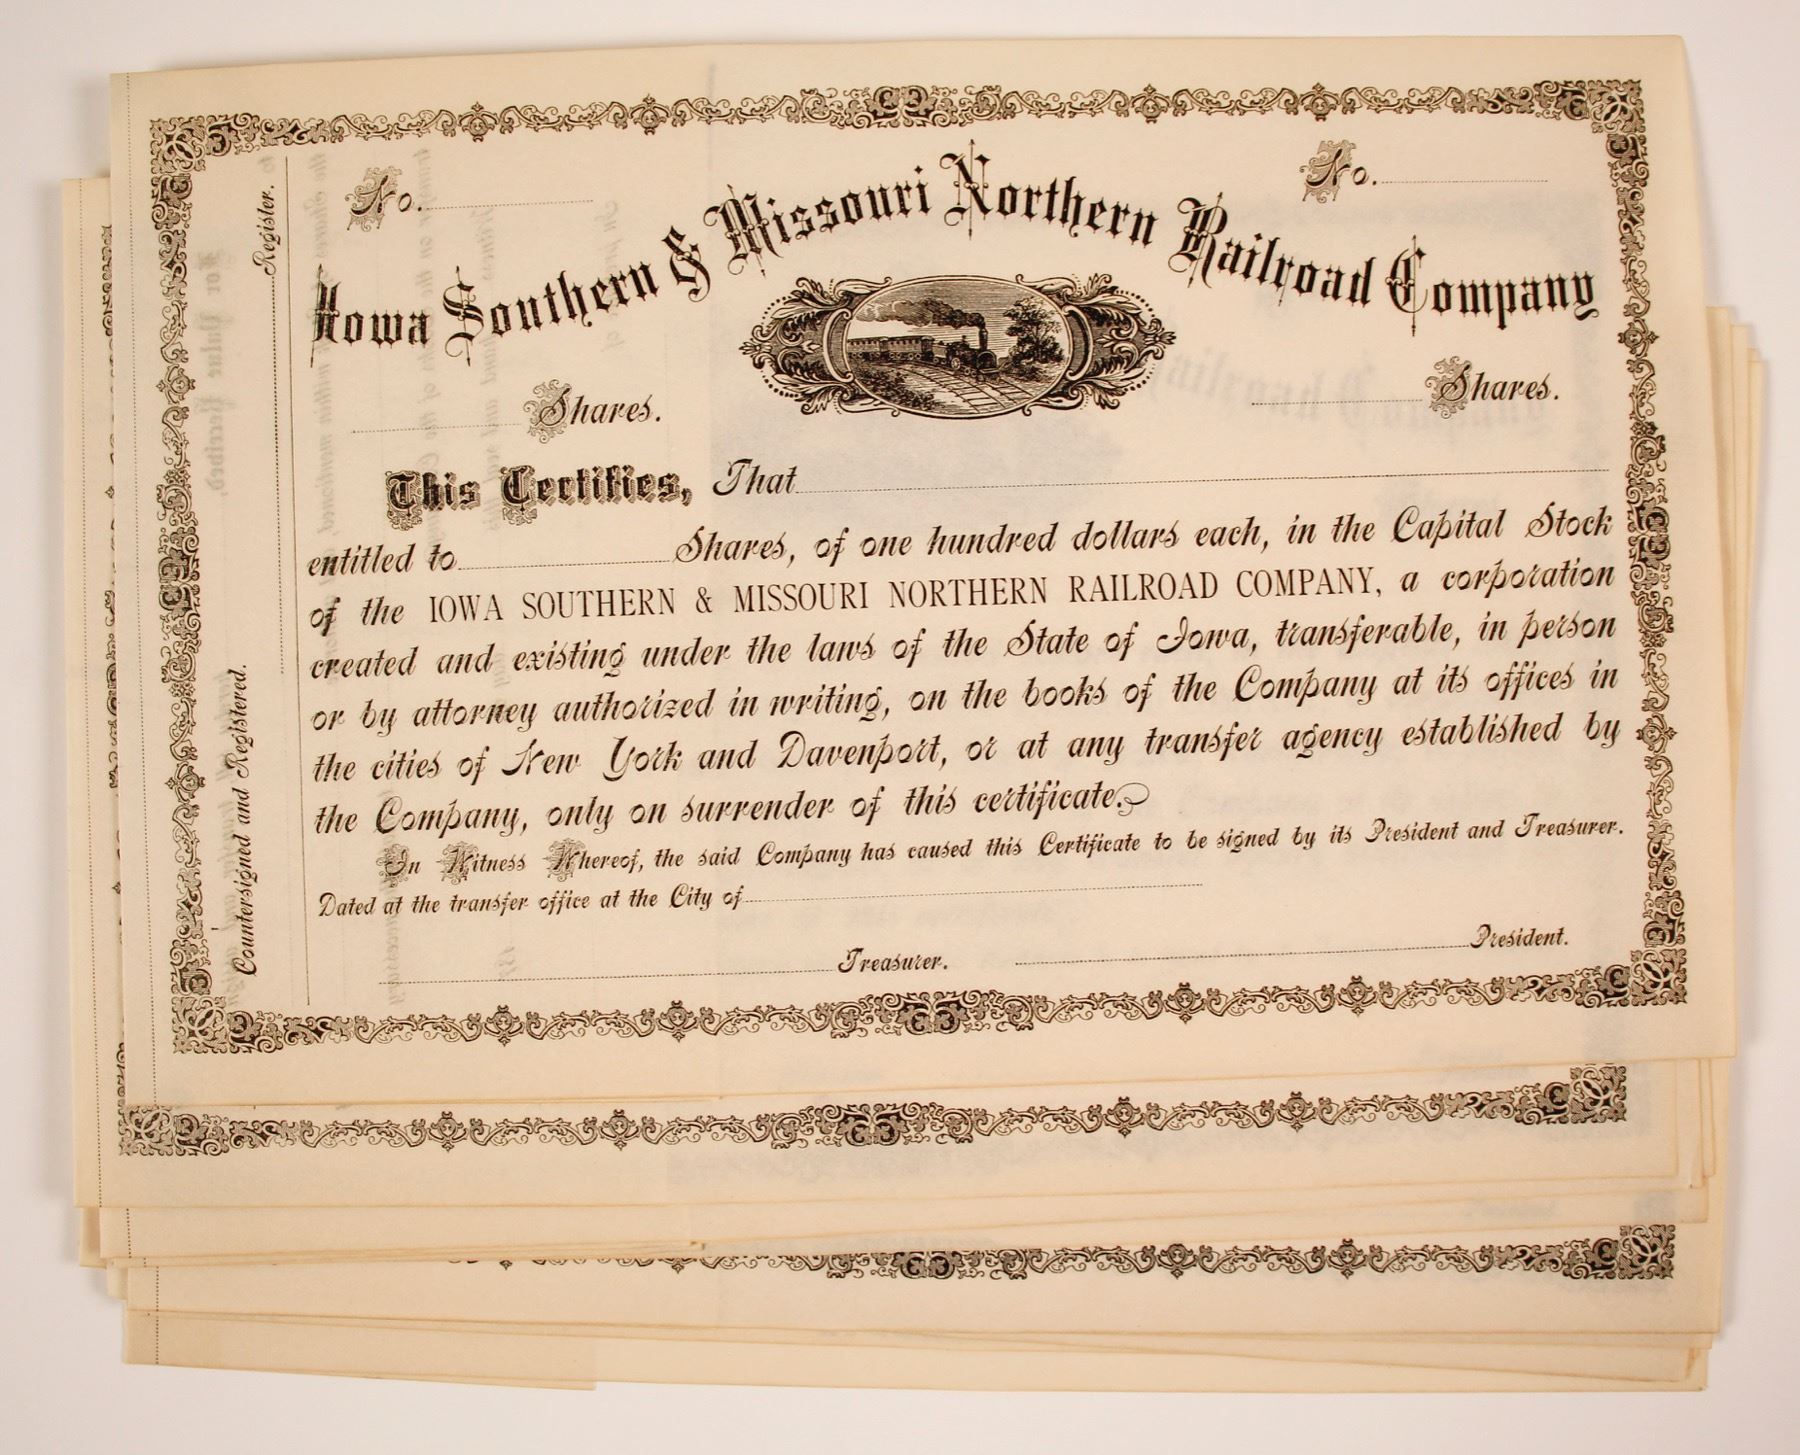 No. No.
Iowa Southern & Missouri Northern Railroad Company
Shares. Shares.
This Certifies, That
entitled to Shares, of one hundred dollars each, in the Capital Stock
of the IOWA SOUTHERN & MISSOURI NORTHERN RAILROAD COMPANY, a corporation
created and existing under the laws of the State of Iowa, transferable, in person
or by attorney authorized in writing, on the books of the Company at its offices in
the cities of New York and Davenport, or at any transfer agency established by
the Company, only on surrender of this certificate.
In Witness Whereof, the said Company has caused this Certificate to be signed by its President and Treasurer.
Dated at the transfer office at the City of
Treasurer. President.
Countersigned and Registered.
Register.
For Value Received,